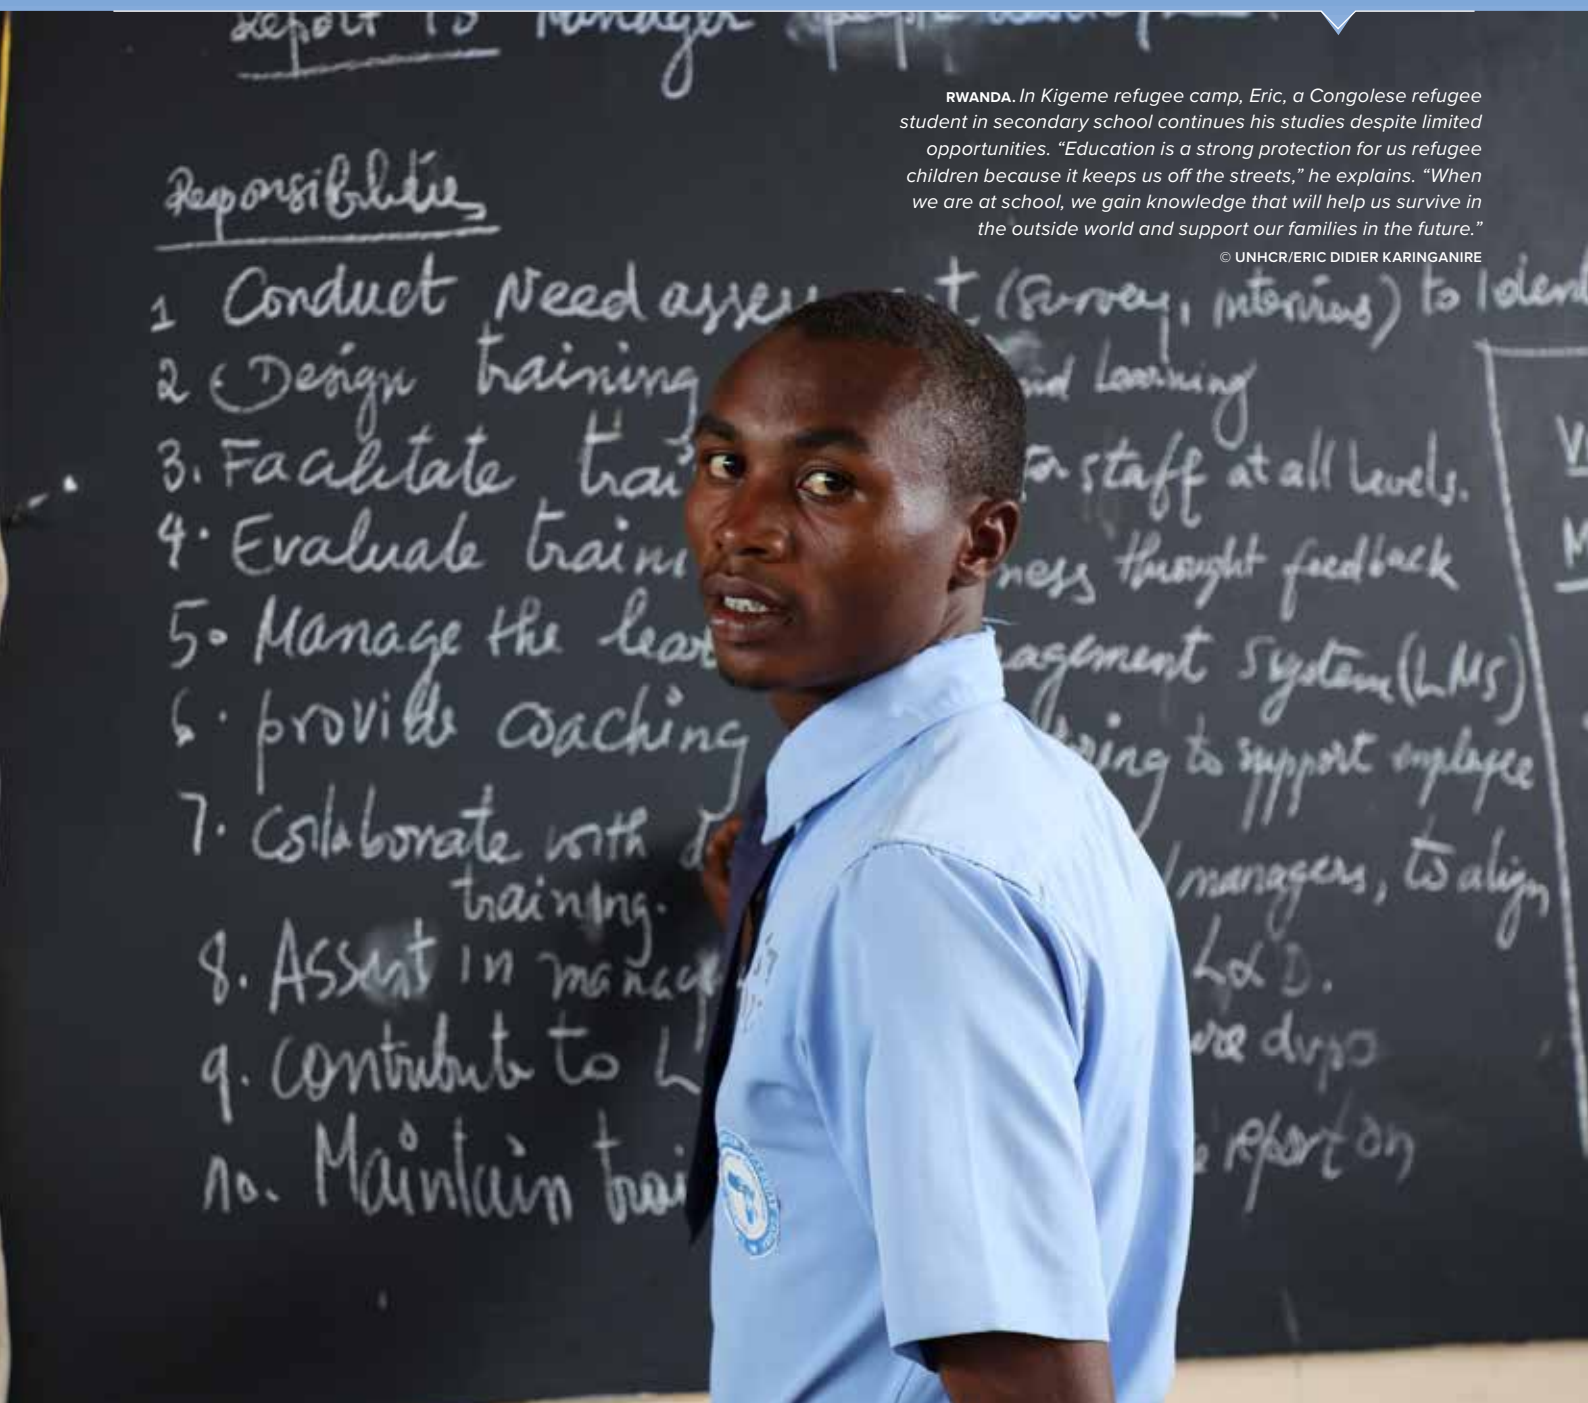 Report to Manager people
RWANDA. In Kigeme refugee camp, Eric, a Congolese refugee
student in secondary school continues his studies despite limited
opportunities. “Education is a strong protection for us refugee
children because it keeps us off the streets,” he explains. “When
we are at school, we gain knowledge that will help us survive in
the outside world and support our families in the future.”
© UNHCR/ERIC DIDIER KARINGANIRE
Responsibilities
1 Conduct Need asse t (Survey, interviws) to Iden
2 Design training and Learning
3. Facilitate trai for staff at all Levels.
4. Evaluate traini ness throught feedback
5. Manage the lear agement System (LMS)
6. provide coaching ring to support employee
7. Collaborate with d / managers, to align
training.
8. Assist In manag L&D.
9. Contribute to L
10. Maintain trai e report on